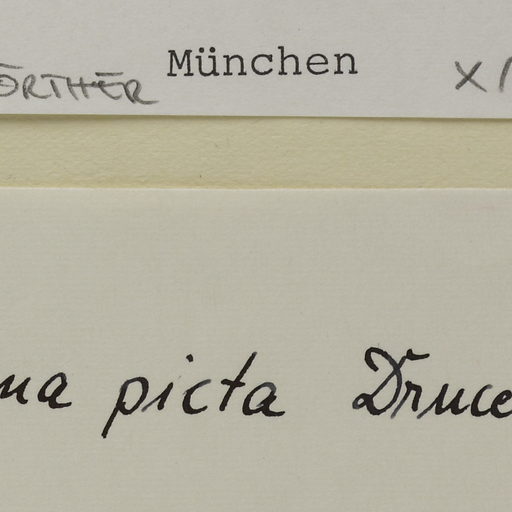 ÖRTHER München X/
na picta Druce